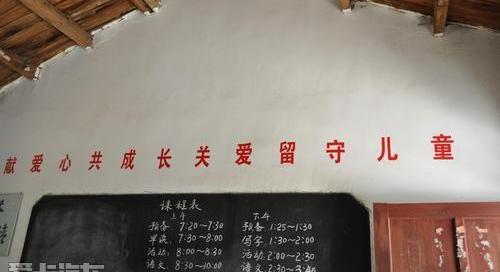 献爱心共成长关爱留守儿童
课程表
上午 下午
预备 7:20~7:30 预备 1:25~1:30
早读 7:30~8:00 写字 1:30~2:00
活动 8:00~8:30 活动 2:00~2:30
语文 8:30~10:00 语文 2:30~3:40
爱卡汽车